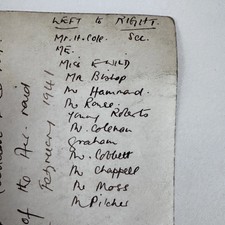 LEFT to RIGHT.
Mr. H. Cole. Sec.
ME.
Miss E WILD
Mr Bishop
Mr Hammond.
Mr Rance.
Young Roberts
Mr. Coleman
Graham
Mr. Cobbett
Mr Chappell
Mr Moss
Mr Pilcher
of the Air-raid
February 1941